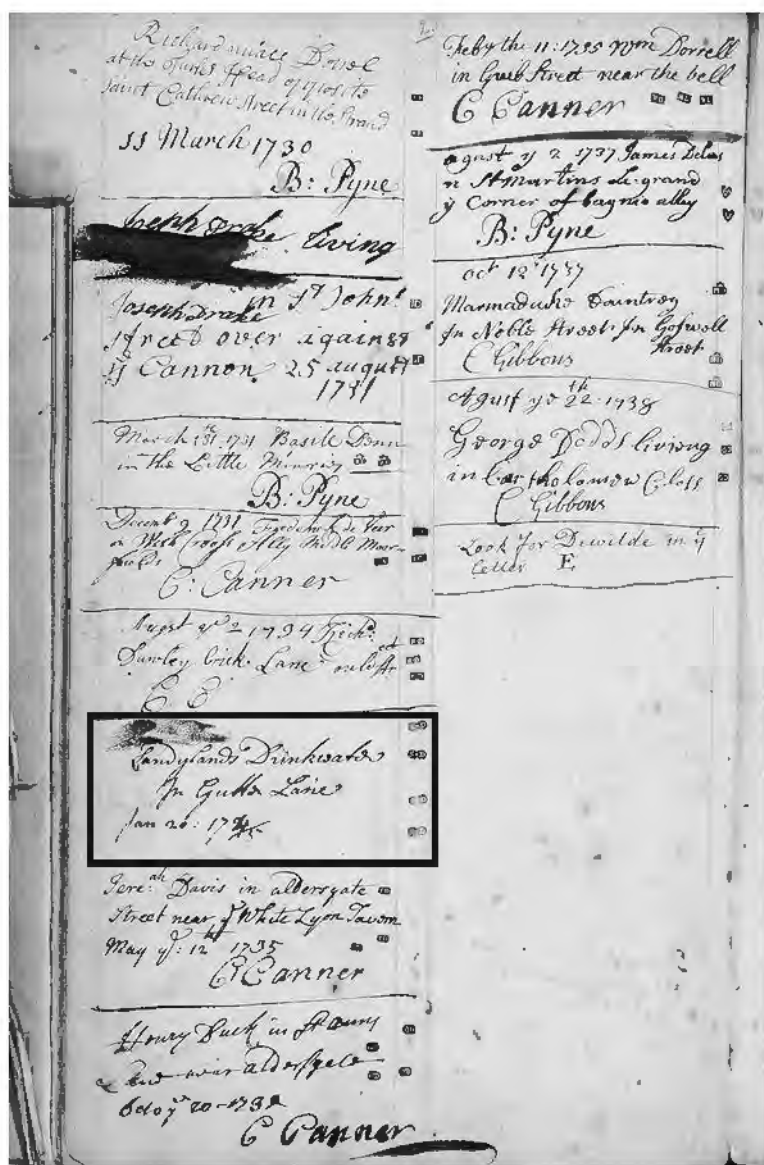 Richard Dorrel
at the Turks Head opposite
Saint Cathren Street in the Strand
11 March 1730
B: Pyne
Joseph Drake living
Joseph Drake in St John's
street over against
ye Cannon 25 august
1731
March 1731 Basile Denn
in the Little Minories
B: Pyne
Decemb 9 1731 Frederick de Veer
in White Cross Ally Middle Moor-
fields
C: Canner
August ye 2 1734 Richd
brick Lane old str
C C
Sandylands Drinkwater
In Gutter Lane
Jan 20: 173
Jereah Davis in aldersgate
Street near ye White Lyon Tavern
May ye: 12th 1735
C Canner
Henry Duck in St anns
Lane near aldersgate
20-173
C Canner
Feby the 11: 1735 Wm Dorrell
in Grub Street near the bell
C Canner
agust ye 2 1737 James
n St Martins Le grand
ye Corner of bagnio alley
B: Pyne
oct 12 1737
Marmaduke Daintrey
In Noble Street In Goswell
Street
C Gibbons
Agust ye 22th 1738
George Dodds living
in bartholomew Closs
C Gibbons
Look for Dewilde in ye
Letter E,